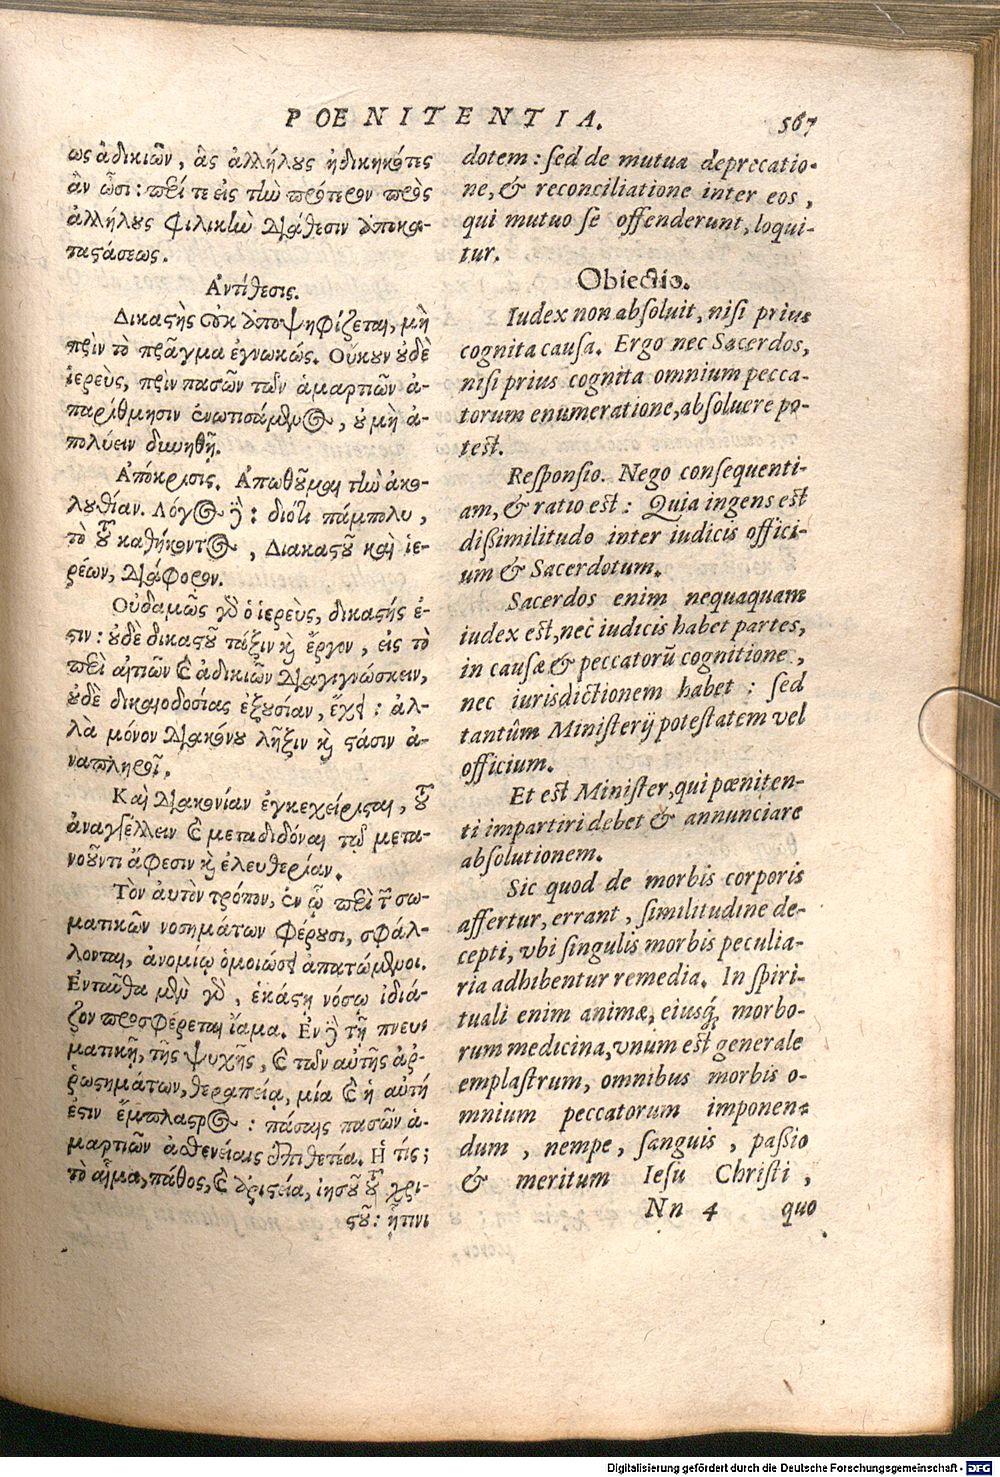 POENITENTIA.
567
ως ἀδικιῶν, ἃς ἀλλήλους ἠδικηκότες
ἂν ὦσι: περί τε εἰς τὴν πρότερον πρὸς
ἀλλήλους φιλικὴν διάθεσιν ἀποκα-
ταστάσεως.
Αντίθεσις.
Δικαστὴς οὐκ ἀποψηφίζεται, μὴ
πρὶν τὸ πρᾶγμα ἐγνωκώς. Οὔκουν οὐδὲ
ἱερεὺς, πρὶν πασῶν τῶν ἁμαρτιῶν ἀ-
παρίθμησιν ἐνωτισάμενος, οὐ μὴ ἀ-
πολύειν δυνηθῇ.
Ἀπόκρισις. Ἀπωθοῦμαι τὴν ἀκο-
λουθίαν. Λόγος δὲ: διότι πάμπολυ,
τὸ τοῦ καθήκοντος, Διακαστοῦ καὶ ἱε-
ρέων, διάφορον.
Οὐδαμῶς γὰρ ὁ ἱερεὺς, δικαστής ἐ-
στιν: οὐδὲ δικαστοῦ τάξιν καὶ ἔργον, εἰς τὸ
περὶ αἰτιῶν καὶ ἀδικιῶν διαγιγνώσκειν,
οὐδὲ δικαιοδοσίας ἐξουσίαν, ἔχει: ἀλ-
λὰ μόνον διακόνου λῆξιν καὶ στάσιν ἀ-
ναπληροῖ.
Καὶ διακονίαν ἐγκεχείρισται, τοῦ
ἀναγγέλλειν καὶ μεταδιδόναι τῷ μετα-
νοοῦντι ἄφεσιν καὶ ἐλευθερίαν.
Τὸν αὐτὸν τρόπον, ἐν ᾧ περὶ τῶν σω-
ματικῶν νοσημάτων φέρουσι, σφάλ-
λονται, ἀνομίῳ ὁμοιώσει ἀπατώμενοι.
Ἐνταῦθα μὲν γὰρ, ἑκάστῃ νόσῳ ἰδιά-
ζον προσφέρεται ἴαμα. Ἐν δὲ τῇ πνευ-
ματικῇ, τῆς ψυχῆς, καὶ τῶν αὐτῆς ἀρ-
ρωστημάτων, θεραπείᾳ, μία καὶ ἡ αὐτή
ἐστιν ἔμπλαστρος: πάσαις πασῶν ἁ-
μαρτιῶν ἀσθενείαις ἐπιθετέα. Ἡ τίς;
τὸ αἷμα, πάθος, καὶ ἀριστεία, ἰησοῦ τοῦ χρι-
στοῦ: ἥτινι
dotem: sed de mutua deprecatio-
ne, & reconciliatione inter eos,
qui mutuo se offenderunt, loqui-
tur.
Obiectio.
Iudex non absoluit, nisi prius
cognita causa. Ergo nec Sacerdos,
nisi prius cognita omnium pecca-
torum enumeratione, absoluere po-
test.
Responsio. Nego consequenti-
am, & ratio est: Quia ingens est
dissimilitudo inter iudicis offici-
um & Sacerdotum.
Sacerdos enim nequaquam
iudex est, nec iudicis habet partes,
in causæ & peccatorũ cognitione,
nec iurisdictionem habet: sed
tantûm Ministerij potestatem vel
officium.
Et est Minister, qui pœniten-
ti impartiri debet & annunciare
absolutionem.
Sic quod de morbis corporis
affertur, errant, similitudine de-
cepti, vbi singulis morbis peculia-
ria adhibentur remedia. In spiri-
tuali enim animæ, eiusq́; morbo-
rum medicina, vnum est generale
emplastrum, omnibus morbis o-
mnium peccatorum imponen-
dum, nempe, sanguis, passio
& meritum Iesu Christi,
Nn 4 quo
Digitalisierung gefördert durch die Deutsche Forschungsgemeinschaft - DFG